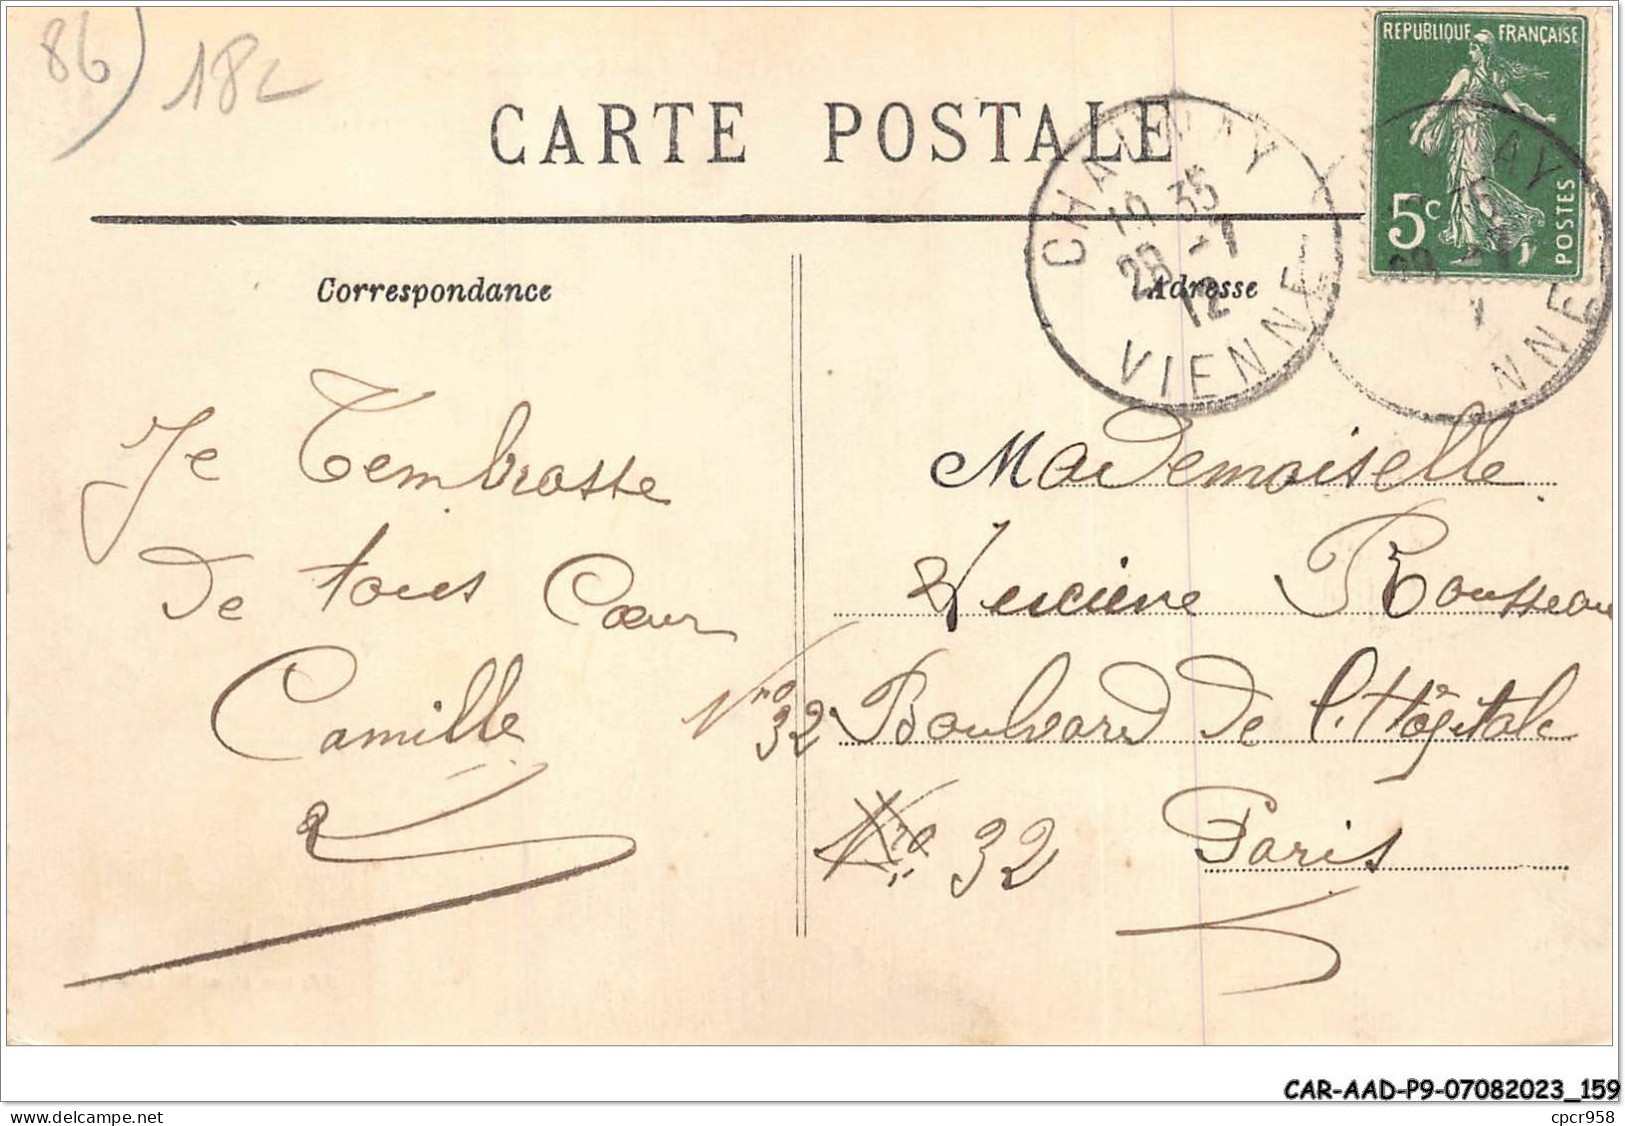 86)
18c
CARTE POSTALE
REPUBLIQUE FRANÇAISE
5c
POSTES
CHAUNAY
10 35
28 -7
12
VIENNE
AY
35
28 -7
1
NNE
Correspondance
Adresse
Je t'embrasse
De tous Cœur
Camille
Mademoiselle
Lucienne Rousseau
Nro 32 Boulvard De l'Hôpitale
Nro 32 Paris
CAR-AAD-P9-07082023_159
cpcr958